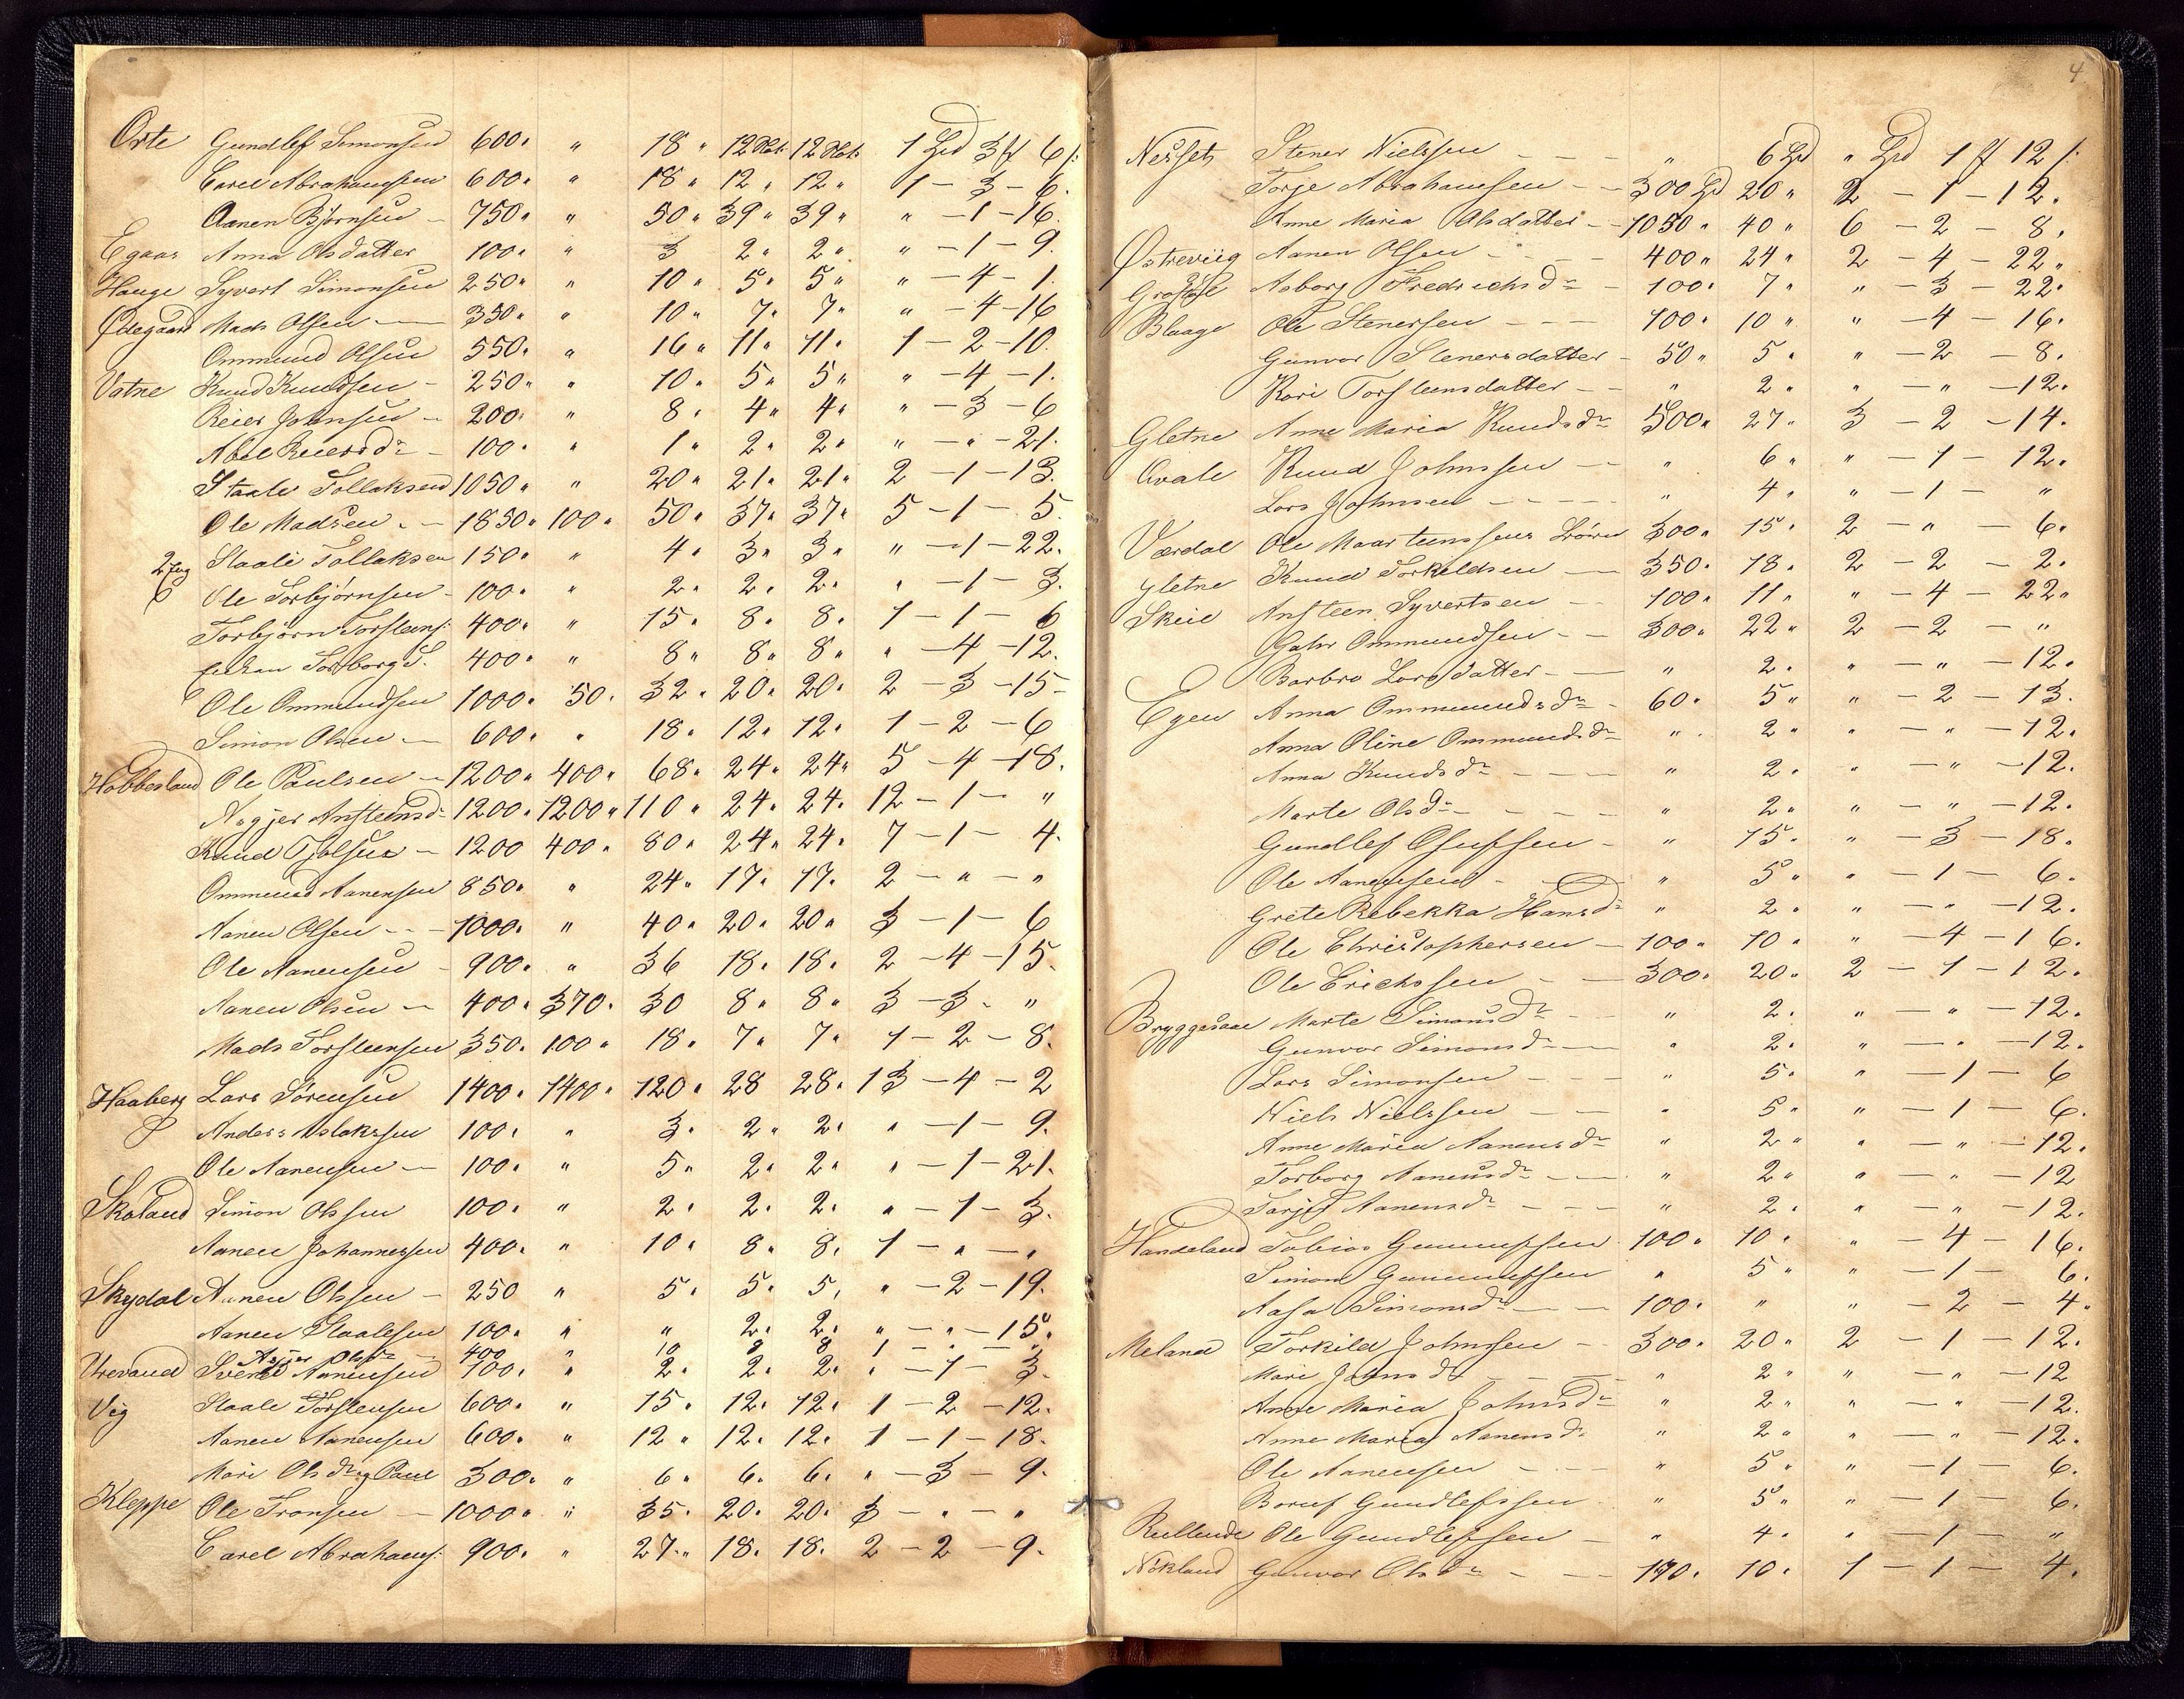 Orte Gundlef Simonsen 600 " 18 " 12 Skt 12 Skt 1 Spd 3 ₰ 6 /:
Carel Abrahamsen 600 " " 18 " 12 " 12 " 1 – 3 – 6.
Aanen Bjørnsen – 750 " " 50 " 39 " 39 " " – 1 – 16.
Egaas Anna Olsdatter 100 " " 3 2 " 2 " " – 1 – 9.
Hauge Syvert Simonsen 250 " " 10 " 5 " 5 " " – 4 – 1.
Ødegaard Mads Olsen – 350 " " 10 " 7 " 7 " " – 4 – 16
Ommund Olsen 550 " " 16 " 11 " 11 " 1 – 2 – 10.
Vatne Knud Knudsen – 250 " " 10 " 5 " 5 " " – 4 – 1.
Reier Johnsen – 200 " " 8 " 4 " 4 " " – 3 – 6
Abel Reiersdr – 100 " " 1 " 2 " 2 " " – " – 21.
Staale Tollaksen 1050 " " 20 " 21 " 21 " 2 – 1 – 13.
Ole Madsen – 1850 " 100 " 50 " 37 " 37 " 5 – 1 – 5.
Staale Tollaksen 150 " " 4 " 3 " 3 " " – 1 – 22.
Ole Torbjørnsen – 100 " " 2 " 2 " 2 " " – 1 – 3.
Torbjørn Torsteins: 400 " " 15 " 8 " 8 " 1 – 1 – 6
Enken Torborg T. 400 " " 8 " 8 " 8 " " – 4 – 12.
Ole Ommundsen 1000 " 50 " 32 " 20 " 20 " 2 – 3 – 15 –
Simon Olsen – 600 " " 18 " 12 " 12 " 1 – 2 – 6
Hobbesland Ole Paulsen – 1200 " 400 " 68 " 24 " 24 " 5 – 4 – 18.
Ansteinsdr 1200 " 1200 " 110 " 24 " 24 " 12 – 1 – "
Knud – 1200 400 " 80 " 24 " 24 " 7 – 1 – 4.
Ommund Aanensen 850 " " 24 " 17 " 17 " 2 – " – "
Aanen Olsen – – 1000 " " 40 " 20 " 20 " 3 – 1 – 6
Ole Aanensen – 900 " " 36 18 " 18 " 2 – 4 – 15.
Aanen Olsen – 400 " 370 " 30 8 " 8 " 3 – 3 – "
Mads Torsteinsen 350 " 100 " 18 " 7 " 7 " 1 – 2 – 8.
Haaberg Lars Sørensen 1400 " 1400 " 120 " 28 28 " 13 – 4 – 2
Anders Aslaksen 100 " " 3 " 2 " 2 " " – 1 – 9.
Ole Aanensen – 100 " " 5 " 2 " 2 " " – 1 – 21.
Skoland Simon Olsen 100 " " 2 " 2 " 2 " " – 1 – 3.
Aanen Johannessen 400 " " 10 " 8 " 8 " 1 – " – "
Skeydal Aanen Olsen – 250 " 5 " 5 " 5 " " – 2 – 19.
Aanen Staalesen 100 " " " 2 " 2 " " – " – 15 "
Asjer Olsdr 400 " 10 8 8 1 – " "
Urevand Svend Aanensen 100 " " 2 " 2 " 2 " " – 1 – 3.
Vig Staale Torstensen 600 " " 15 " 12 " 12 " 1 – 2 – 12.
Aanen Aanensen 600 " " 12 " 12 " 12 " 1 – 1 – 18.
Mari Olsdr og Paul 300 " " 6 " 6 " 6 " " – 3 – 9.
Kleppe Ole Tronsen – 1000 " " 35 " 20 " 20 " 3 – " – "
Carel Abrahams: 900 " " 27 " 18 " 18 " 2 – 2 – 9.
4
Nesset Stener Nielssen – – – " 6 Spd " Spd 1 ₰ 12 /:
Torje Abrahamsen – – 300 Spd 20 " 2 – 1 – 12.
Anne Maria Olsdatter – – 1050 " 40 " 6 – 2 – 8.
Østreviig Aanen Olsen – – – 400 " 24 " 2 – 4 – 22 "
Aaborg Fredrichsdr – 100 " 7 " " – 3 – 22.
Blaage Ole Stenersen – – – 100 " 10 " " – 4 – 16.
Gunvor Stenersdatter – 50 " 5 " " – 2 – 8.
Kari Torsteinsdatter – – " 2 " " – " – 12.
Gletne Anne Maria Knudsdr 500 " 27 " 3 – 2 – 14.
Qvale Knud Johnssen – – " 6 " " – 1 – 12.
Lars Johnsen – – – – " 4 " " – 1 – "
Værdal Ole Maartenssens Børn 300 " 15 " 2 – " – 6.
Gletne Knud Torkeldsen – 350 " 18 " 2 – 2 – 2.
Skeie Ansteen Syvertsen – 100 " 11 " " – 4 – 22 "
Gahr Ommundsen – – 300 " 22 " 2 – 2 – "
Barbro Larsdatter – – " 2 " " – " – 12.
Egen Anna Ommundsdr – 60 " 5 " " – 2 – 13.
Anna Oline Ommundsdr " 2 " " – " – 12.
Anna Knudsdr – – – " 2 " " – " – 12.
Marte Olsdr – – – – " 2 " " – " – 12.
Gundlef Olufsen – " 15 " " – 3 – 18.
Ole Aanensen – – " 5 " " – 1 – 6.
Grete Rebekka Hansdr " 2 " " – " – 12.
Ole Christophersen – 100 " 10 " " – 4 – 16.
Ole Erichssen – – 300 " 20 " 2 – 1 – 12.
Bryggesaae Marte Simonsdr – " 2 " " – " – 12.
Gunvor Simonsdr – – " 2 " " – " – 12.
Lars Simonsen – – – " 5 " " – 1 – 6
Niels Nielssen – – " 5 " " – 1 – 6.
Anne Maria Aanensdr " 2 " " – " – 12.
Torborg Aanensdr – – " 2 " " – " – 12
Aanensdr – – – " 2 " " – " – 12.
Handeland Tobias Gunnufsen 100 " 10 " " – 4 – 16.
Simon Gunnufsen " 5 " " – 1 – 6.
Aasa Simonsdr – – 100 " " " – 2 – 4.
Meland Torkild Johnsen – 300 " 20 " 2 – 1 – 12.
Mari Johnsdr – – – " 2 " " – " – 12
Anne Maria Johnsdr " 2 " " – " – 12.
Anne Maria Aanensdr " 2 " " – " – 12.
Ole Aanensen – – " 5 " " – 1 – 6.
Gundlefssen " 5 " " – 1 – 6.
Ole Gundlefsen – " 4 " " – 1 – "
Nökland Gunvor Olsdr – – – 170 " 10 " 1 – 1 – 4.